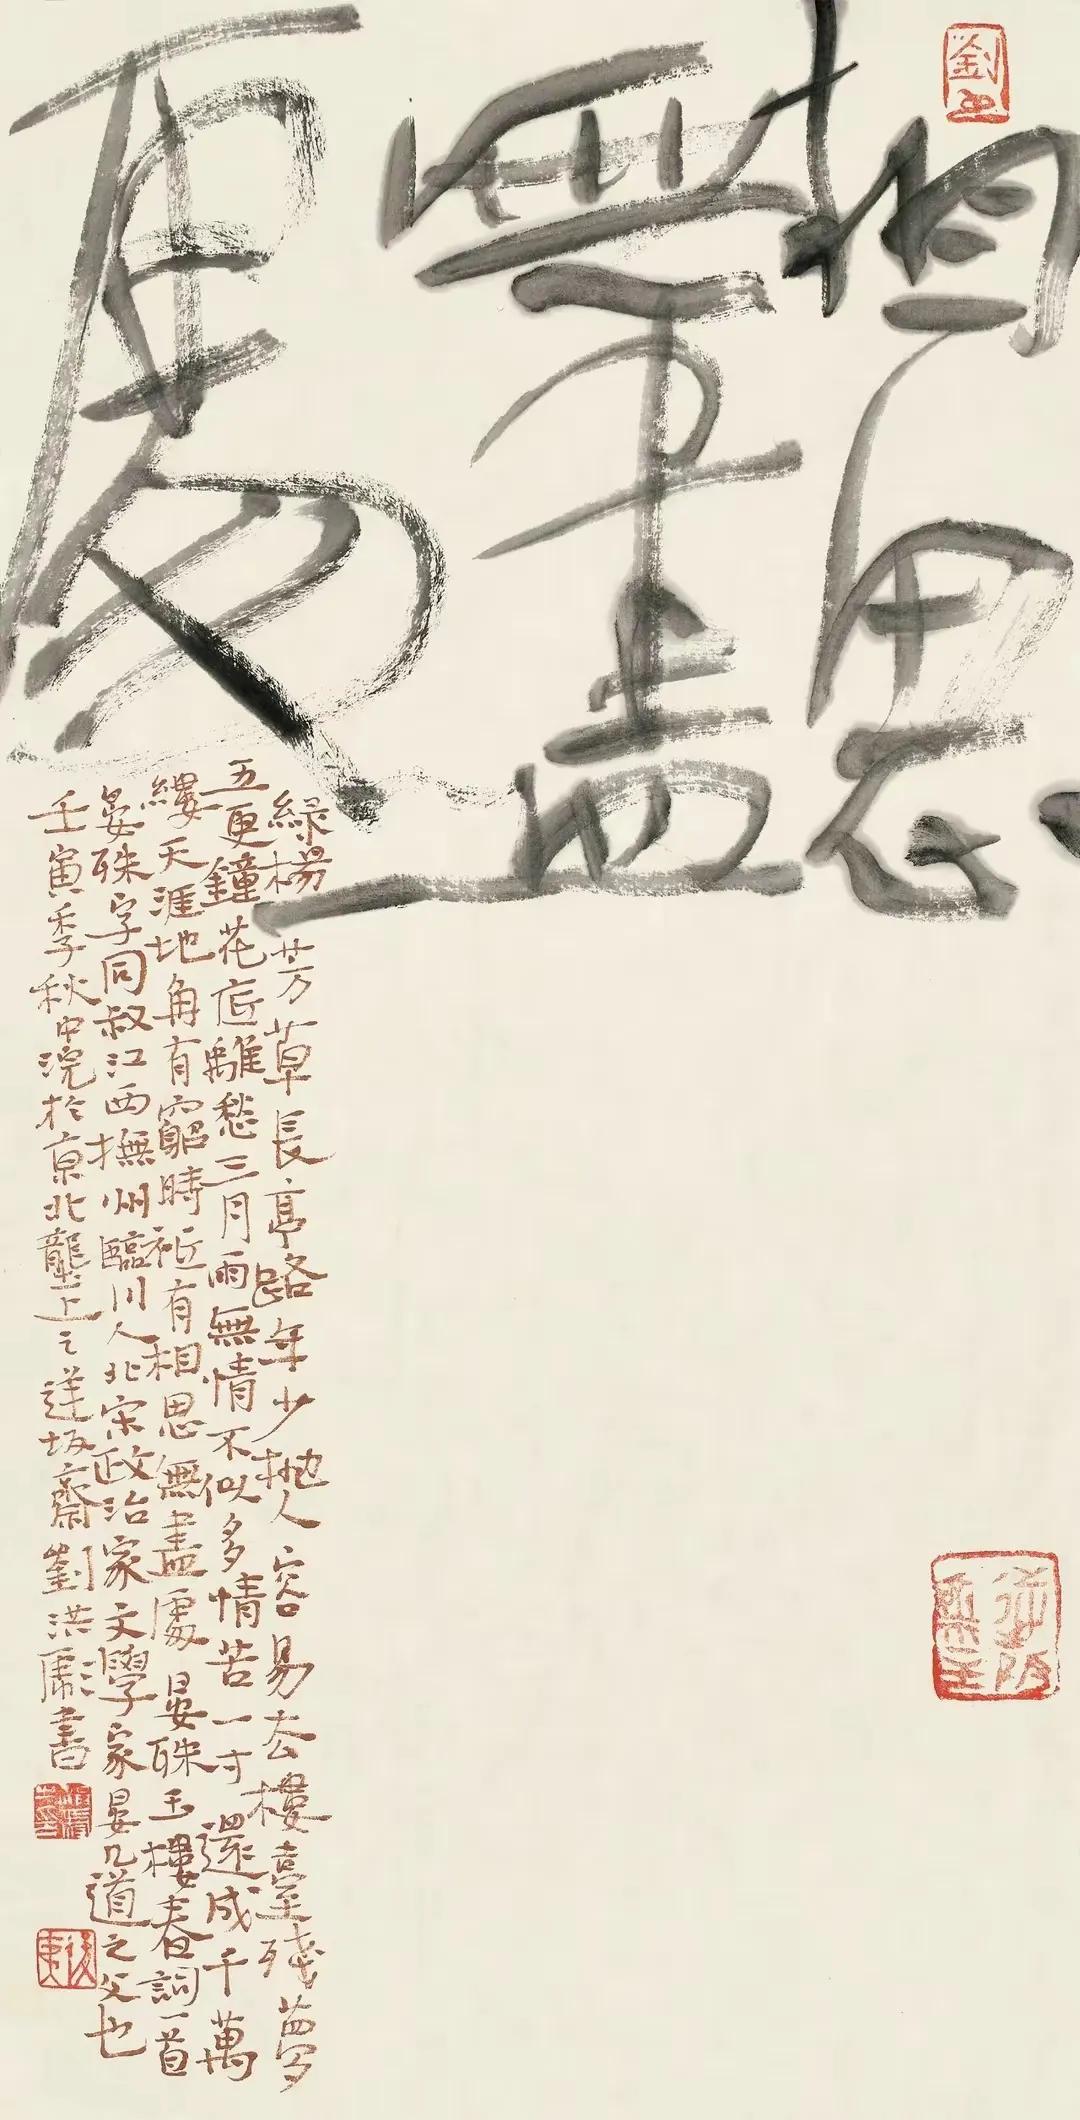 相思
無盡
處
綠楊芳草長亭路年少抛人容易去樓臺殘夢
五更鐘花底離愁三月雨無情不似多情苦一寸還成千萬
縷天涯地角有窮時袛有相思無盡處晏殊玉樓春詞一首
晏殊字同叔江西撫州臨川人北宋政治家文學家晏几道之父也
壬寅季秋中浣於京北壟上之逹坂齋劉洪彪書
劉